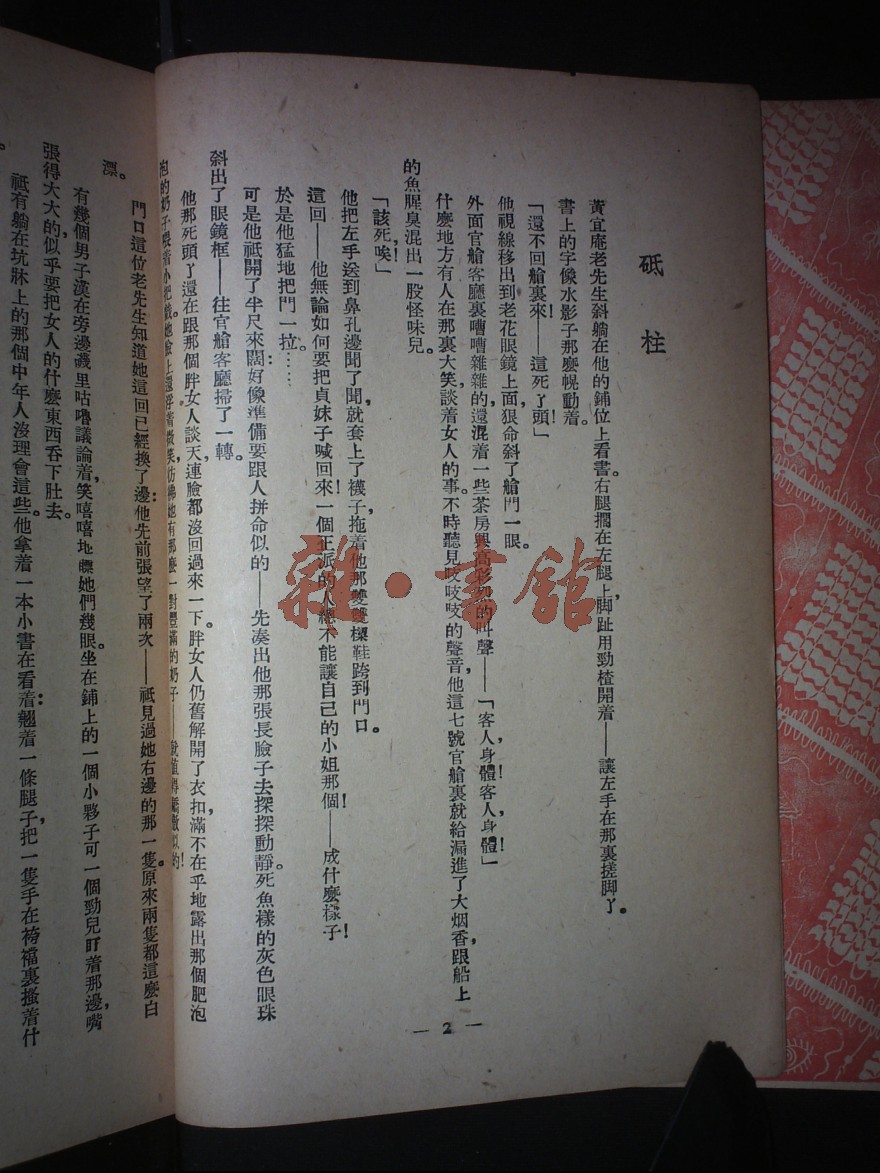 砥柱
黃宜庵老先生斜躺在他的鋪位上看書。右腿擱在左腿上，脚趾用勁楂開着——讓左手在那裏搓脚丫。
書上的字像水影子那麽幌動着。
「還不回艙裏來——這死丫頭！」
他視線移出到老花眼鏡上面，狠命斜了艙門一眼。
外面官艙客廳裏嘈嘈雜雜的，還混着一些茶房興高彩烈的叫聲——「客人身體！客人身體！」
什麽地方有人在那裏大笑，談着女人的事。不時聽見吱吱吱的聲音。他這七號官艙裏就給漏進了大烟香，跟船上
的魚腥臭混出一股怪味兒。
「該死，唉！」
他把左手送到鼻孔邊聞了聞，就套上了襪子，拖着他那雙雙樑鞋跨到門口。
這回——他無論如何要把貞妹子喊回來！一個正派的人總不能讓自己的小姐那個——成什麽樣子！
於是他猛地把門一拉。……
可是他祇開了半尺來闊：好像準備要跟人拚命似的——先凑出他那張長臉子去探探動靜。死魚樣的灰色眼珠
斜出了眼鏡框——往官艙客廳掃了一轉。
他那死丫頭還在跟那個胖女人談天，連臉都沒回過來一下。胖女人仍舊解開了衣扣，滿不在乎地露出那個肥泡
泡的奶子
門口這位老先生知道她這回已經換了邊：他先前張望了兩次——祇見過她右邊的那一隻。原來兩隻都這麽白
漂。
有幾個男子漢在旁邊嘰里咕嚕議論着，笑嘻嘻地瞟她們幾眼。坐在鋪上的一個小夥子可一個勁兒盯着那邊，嘴
張得大大的，似乎要把女人的什麽東西吞下肚去。
祇有躺在坑牀上的那個中年人沒理會這些。他拿着一本小書在看着：翹着一條腿子，把一隻手在袴襠裏搔着什
— 2 —
雜·書館